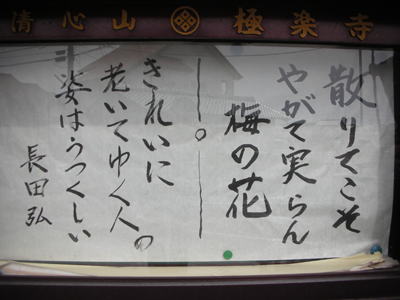 清心山 極楽寺
散りてこそ
やがて実らん
梅の花
きれいに
老いてゆく人の
姿はうつくしい
長田弘